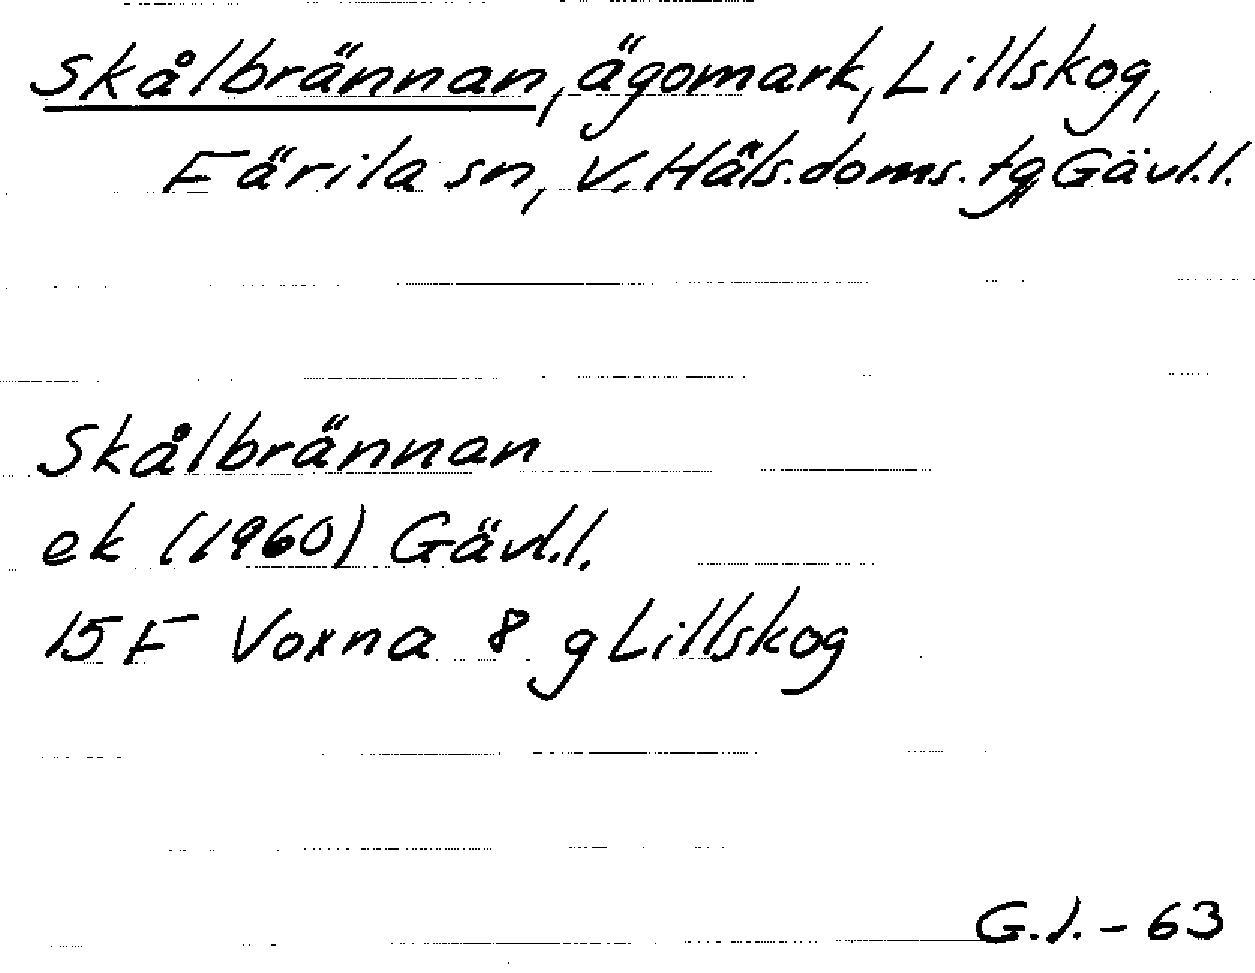 Skålbrännan, ägomark, Lillskog,
Färila sn, V. Häls. doms. tg, Gävl.l.
Skålbrännan
ek (1960) Gävl.l.
15 F Voxna 8 g Lillskog
G.J. - 63